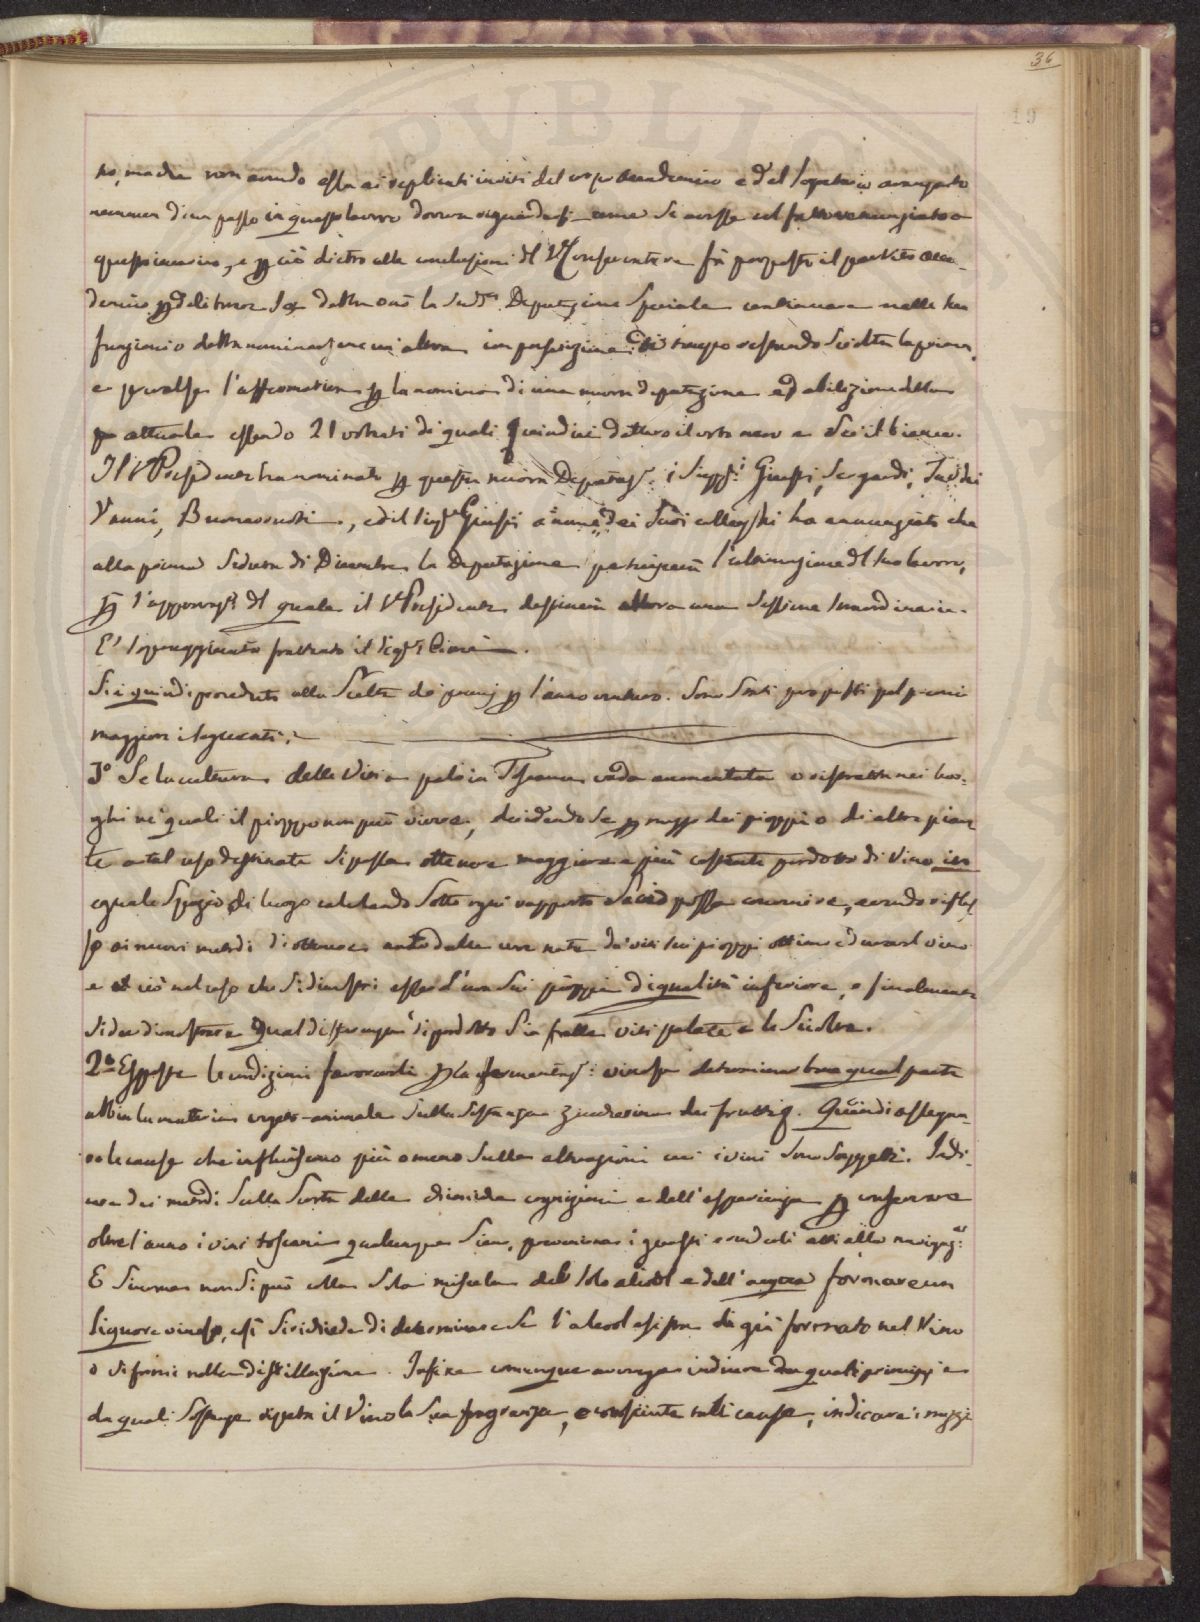 36
19
to, ma che non avendo essa ai replicati inviti del corpo accademico e del Segretario avanzato
nemmen d'un passo in questo lavoro doveva riguardarsi come se avesse col fatto renunziato a
quest'incarico, e per ciò dietro alla conclusioni del V. fù proposto il partito acca-
demico per deliberare se dalla la sudd.ª Deputazione Speciale continuare nelle sue
funzioni o dalla nominarsene un'altra restando sciolta la prima,
e prevalse l'affermativa per la nomina di una nuova deputazione ed abolizione della
attuale essendo 21 votanti de quali quindici dettero il voto nero e sei il bianco.
Il V. Presidente ha nominato per questa nuova Deputaz.e i Sigg.i Giusti, Sergardi, Taddei
Vanni, Buonarroti, ed il Sig.r Giusti a nome dei suoi colleghi ha annunziato che
alla prima seduta di Dicembre la Deputazione parteciperà l'ultimazione del suo lavoro,
per l' del quale il V. Presidente destinerà allora una Sessione straordinaria.
E' sopraggiunto frattanto il Sig.r
Si è quindi proceduto alla scelta de' premj per l'anno venturo. Sono stati proposti pel premi
maggiore i seguenti:
1º Se la cultura delle Viti a palo in Toscana vada aumentata o ristretta nei luo-
ghi ne' quali il pioppo non può vivere, decidendo se per mezzo dei pioppi o di altre pian
te a tal uso destinate si possa ottenere maggiore e più costante prodotto di Vino in
eguale spazio di luogo calcolando sotto ogni rapporto e ciò possa convenire, avendo rifles
so ai nuovi metodi d'ottenere dalle uve nate da' viti sui pioppi ottimo e durevol vino
e ciò nel caso che si dimostri esser l'uva sui pioppi di qualità inferiore, e finalmente
si dee dimostrare qual differenza di prodotto sia fralle viti palate e le
2º Esposte le condizioni favorevoli per la fermentaz.e vinosa determinare bene qual parte
abbia la materia vegeto-animale sulla sostanza zuccherina dei frutti. Quindi assegna-
re le cause che influiscono più o meno sulle alterazioni cui i vini sono soggetti. Indi-
care dei metodi sulla scorta della chimica cognizioni e dell'esperienza per conservare
oltre l'anno i vini toscani qualunque siano, prevenirne i guasti e renderli atti alla navigaz.e
E siccome non si può colla sola miscela del solo alcool e dell'acqua formare un
liquore vinoso, così si richiede di determinare se l'alcool esista di già formato nel Vino
o si formi nella distillazione. Infine comunque avvenga indicare da quali principj e
da quali sostanze ripeta il Vino la sua fragranza, e conosciute tali cause, indicare i mezzi